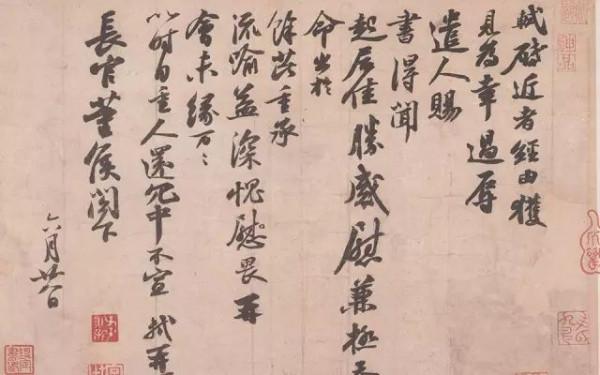 軾啟近者經由獲
見為幸過辱
遣人賜
書得聞
起居佳勝感慰兼極
命出於
餘芘重承
流喻益深愧慰畏再
會未緣萬〻
以時自重人還冗中不宣軾再
長官董侯閣下
六月廿八日